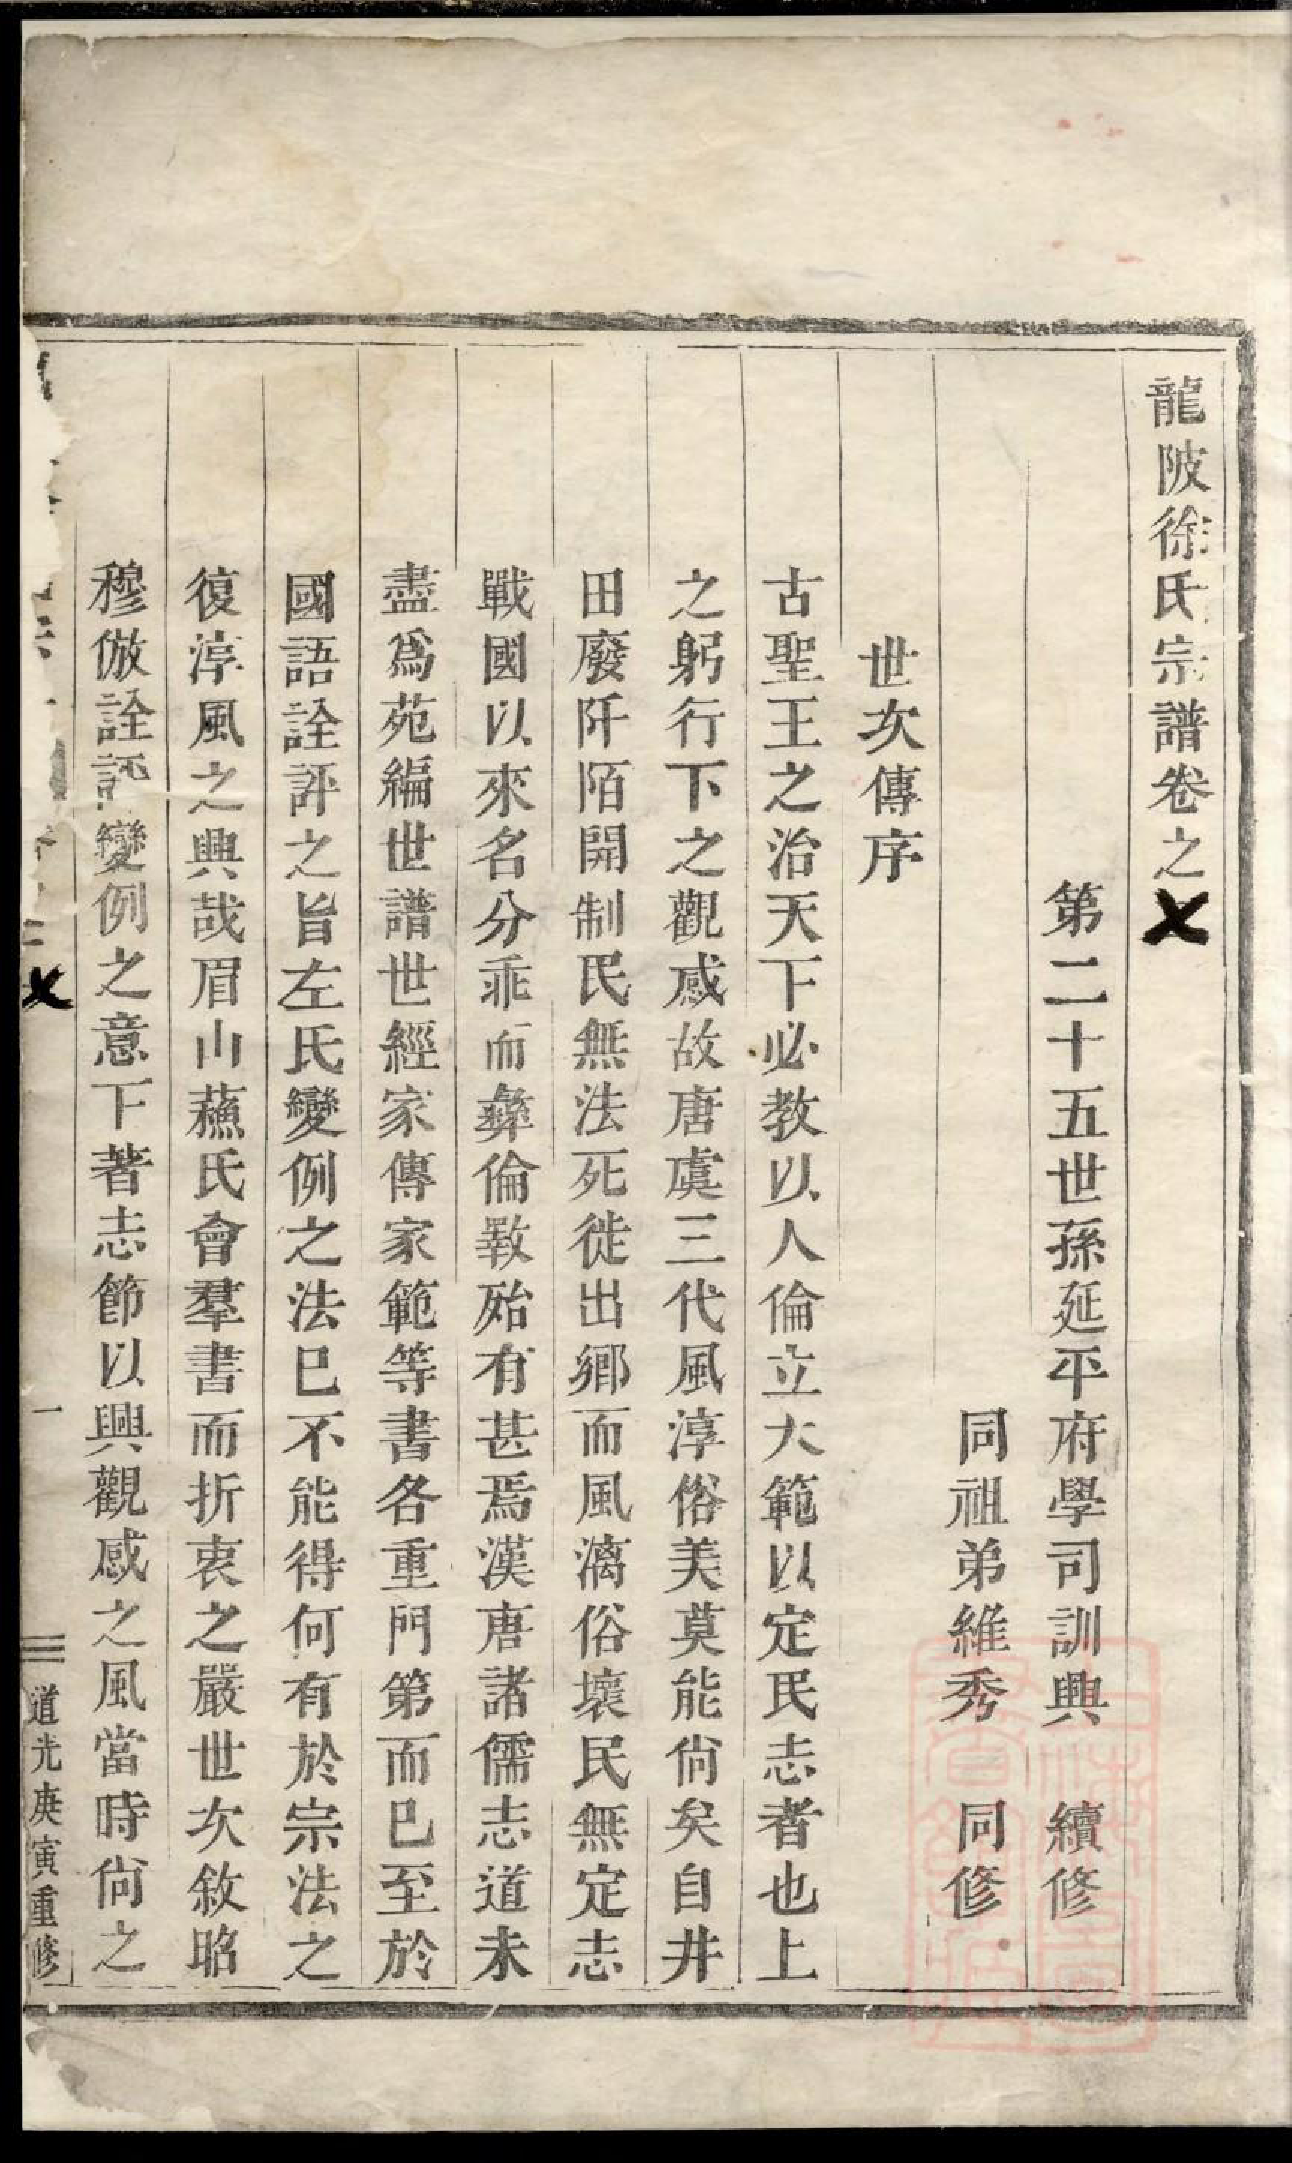 龍陂徐氏宗譜卷之
第二十五世孫延平府學司訓興　續修
同祖弟維秀　同修
世次傳序
古聖王之治天下必教以人倫立大範以定民志者也上
之躬行下之觀感故唐虞三代風淳俗美莫能尙矣自井
田廢阡陌開制民無法死徙出鄉而風漓俗壞民無定志
戰國以來名分乖而彝倫斁殆有甚焉漢唐諸儒志道未
盡爲苑編世譜世經家傳家範等書各重門第而已至於
國語詮評之旨左氏變例之法已不能得何有於宗法之
復淳風之興哉眉山蘓氏會羣書而折衷之嚴世次敘昭
穆倣詮評變例之意下著志節以興觀感之風當時尙之
一
道光庚寅重修